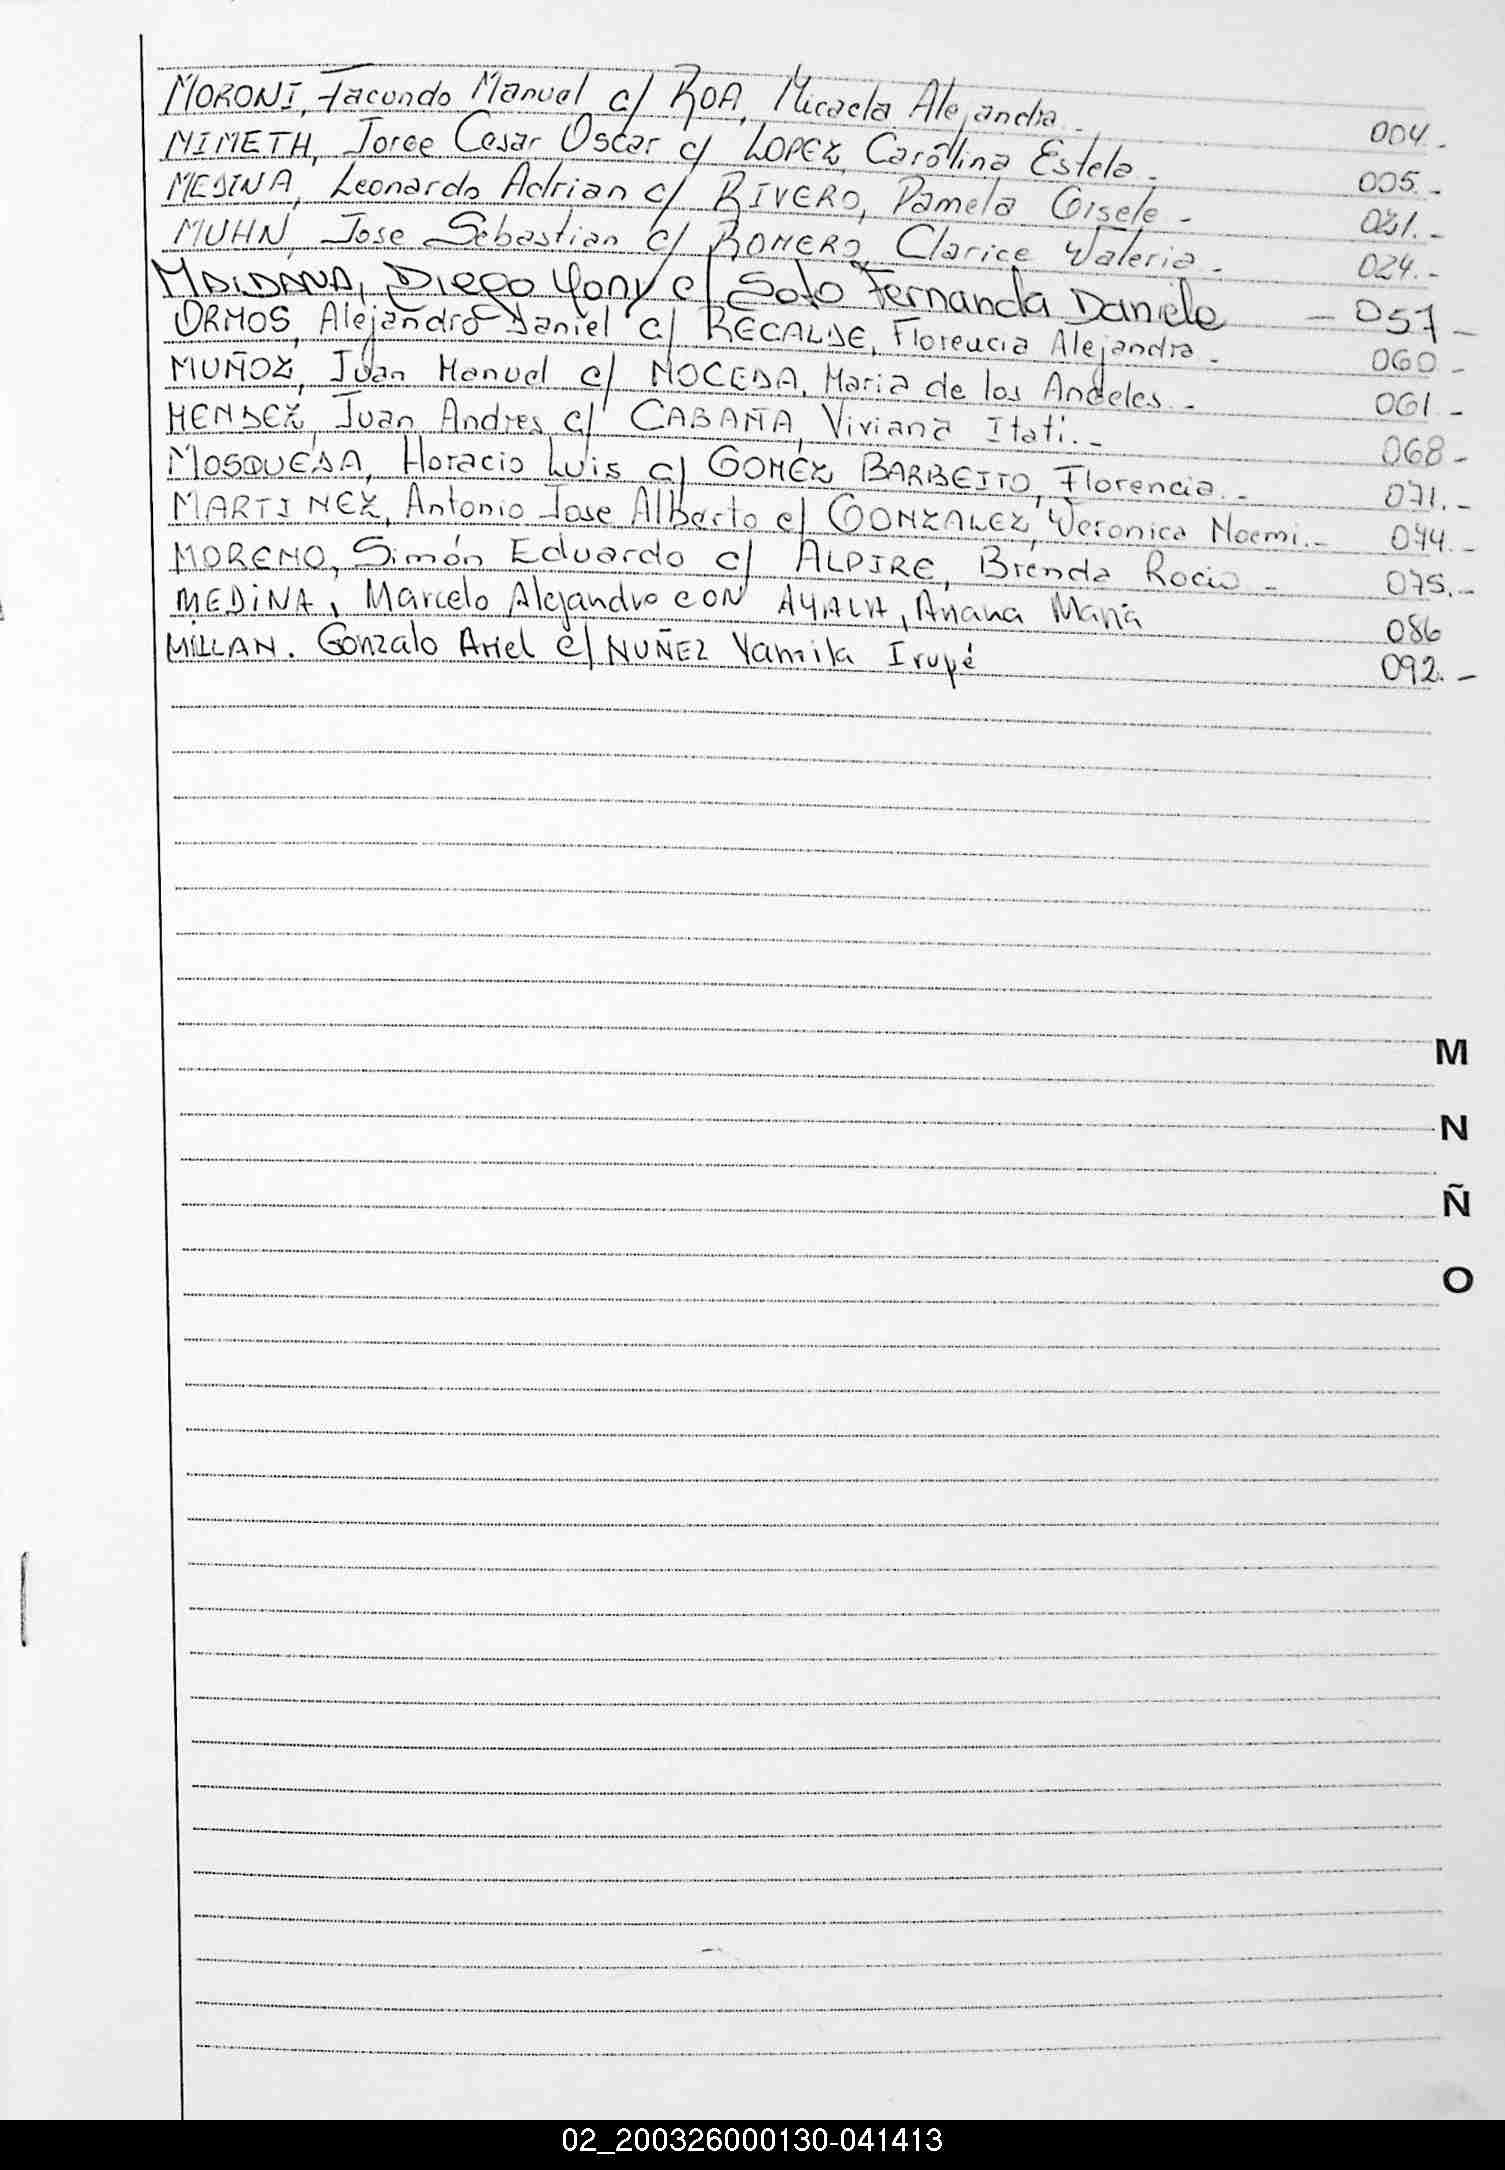 MORONI, Facundo Manuel c/ ROA, Micaela Alejandra.- 004.-
NIMETH, Jorge Cesar Oscar c/ LOPEZ, Carolina Estela.- 005.-
MEDINA, Leonardo Adrian c/ RIVERO, Pamela Gisele.- 021.-
MUHN, Jose Sebastian c/ ROMERO, Clarice Valeria.- 024.-
MAIDANA, Diego Yony c/ Soto Fernanda Daniela - 057-
ORMOS, Alejandro Daniel c/ RECALDE, Florencia Alejandra.- 060-
MUÑOZ, Juan Manuel c/ NOCEDA, Maria de los Angeles.- 061-
MENDEZ, Juan Andres c/ CABAÑA, Viviana Itati.- 068-
MOSQUEDA, Horacio Luis c/ GOMEZ BARBEITO, Florencia.- 071.-
MARTINEZ, Antonio Jose Alberto c/ GONZALEZ, Veronica Noemi.- 074.-
MORENO, Simón Eduardo c/ ALPIRE, Brenda Rocio.- 075.-
MEDINA, Marcelo Alejandro CON AYALA, Ariana Maria 086
MILLAN. Gonzalo Ariel c/ NUÑEZ Yamila Irupé 092.-
M
N
Ñ
O
02_200326000130-041413